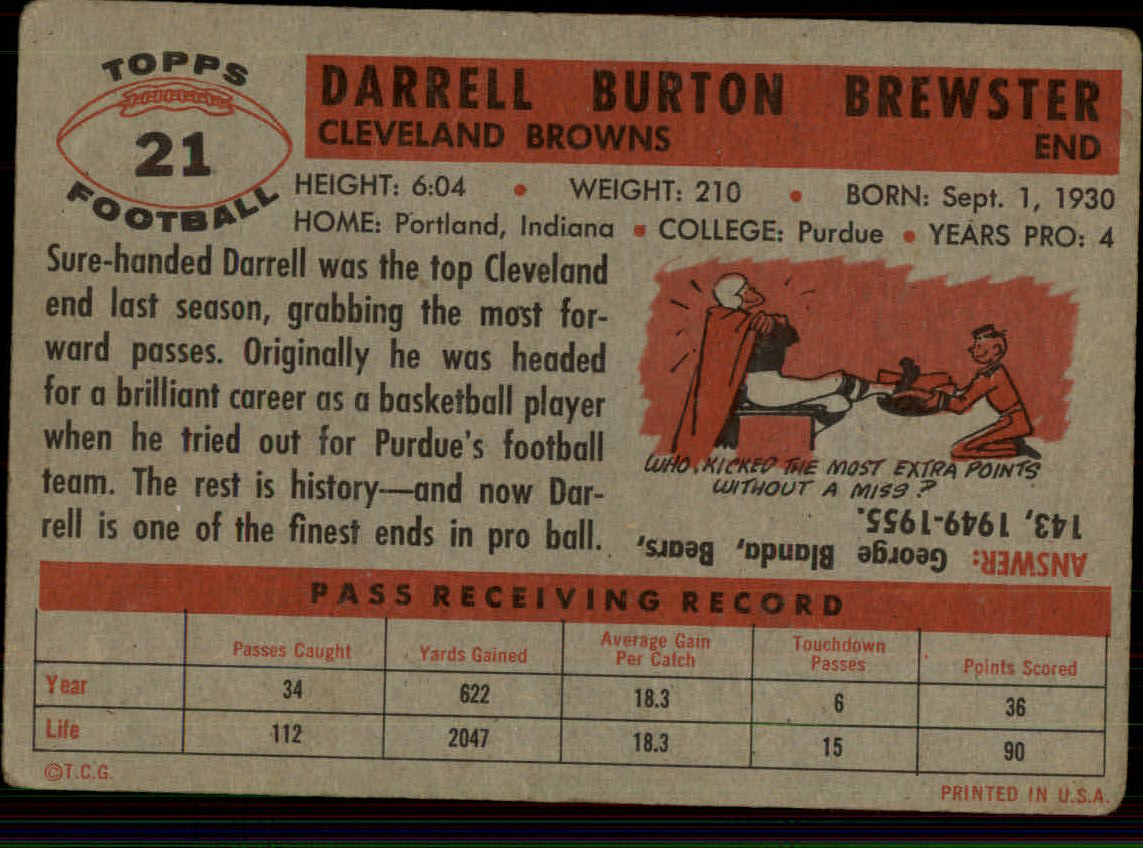 TOPPS
21
FOOTBALL
DARRELL BURTON BREWSTER
CLEVELAND BROWNS END
HEIGHT: 6:04 • WEIGHT: 210 • BORN: Sept. 1, 1930
HOME: Portland, Indiana • COLLEGE: Purdue • YEARS PRO: 4
Sure-handed Darrell was the top Cleveland
end last season, grabbing the most for-
ward passes. Originally he was headed
for a brilliant career as a basketball player
when he tried out for Purdue's football
team. The rest is history—and now Dar-
rell is one of the finest ends in pro ball.
WHO KICKED THE MOST EXTRA POINTS
WITHOUT A MISS?
ANSWER: George Blanda, Bears,
143, 1949-1955.
PASS RECEIVING RECORD
Passes Caught Yards Gained Average Gain Per Catch Touchdown Passes Points Scored
Year 34 622 18.3 6 36
Life 112 2047 18.3 15 90
©T.C.G.
PRINTED IN U.S.A.